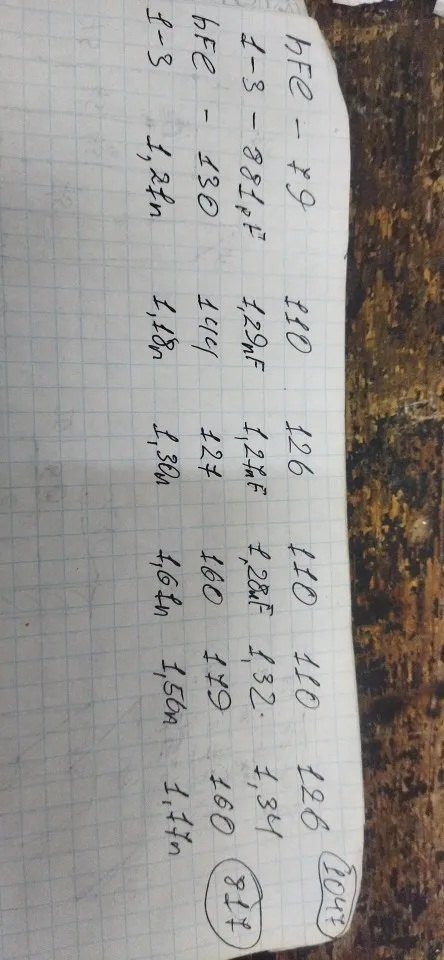 hFe – 79 110 126 110 110 126 1047
1-3 – 881pF 1,29nF 1,27nF 1,28nF 1,32. 1,34
hFe – 130 144 127 160 179 160 817
1-3 1,27n 1,18n 1,30n 1,67n 1,56n 1,17n